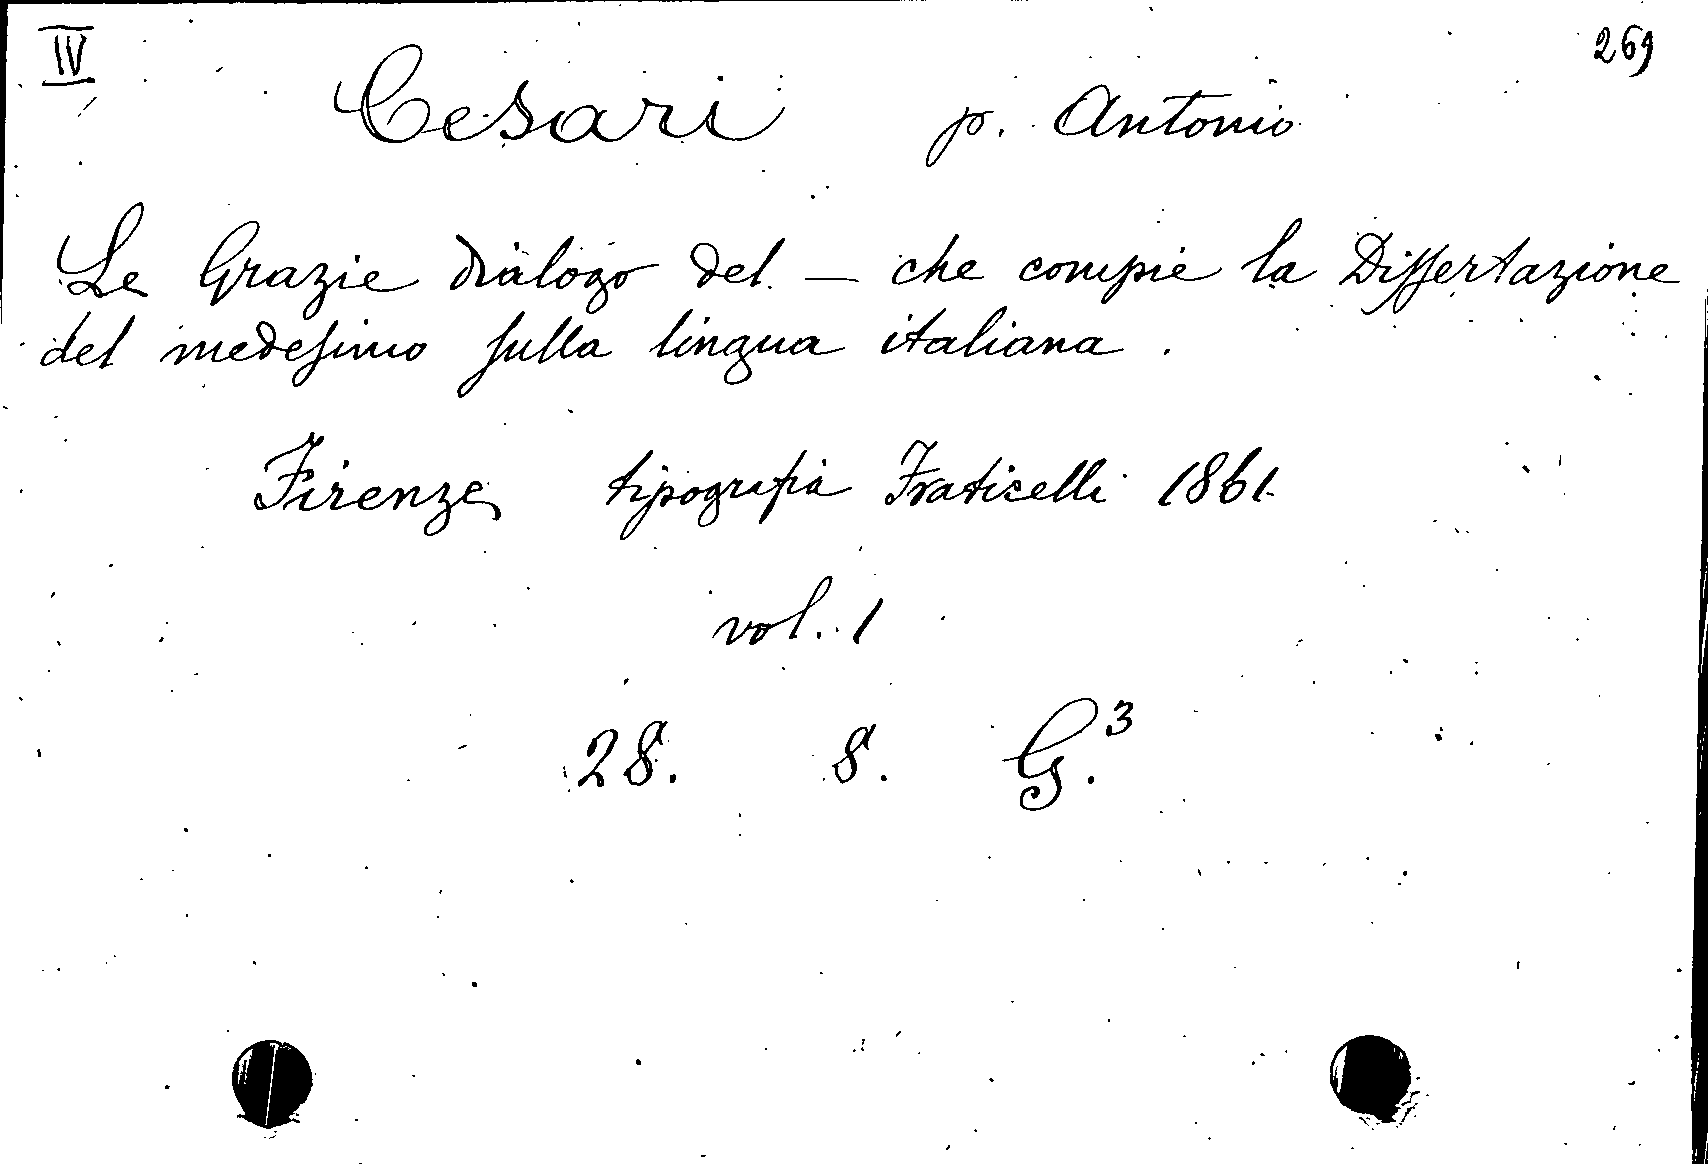 IV 269
Cesari p. Antonio
Le Grazie dialogo del — che compie la Dissertazione
del medesimo sulla lingua italiana.
Firenze tipografia Fraticelli 1861
vol. 1
28. 8. G.³